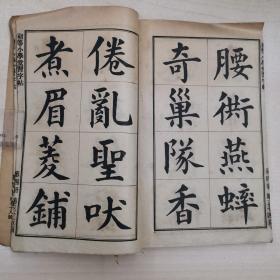 腰衖燕蟀
奇巢隊香
倦亂聖吠
煮眉菱鋪